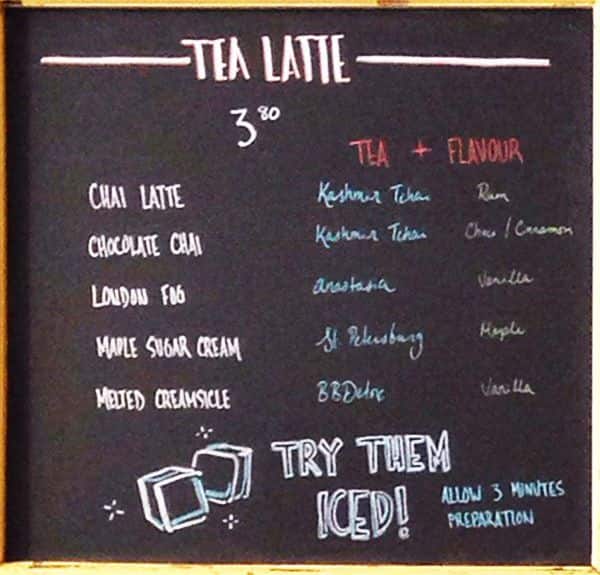 TEA LATTE
3 80
TEA + FLAVOUR
CHAI LATTE Kashmir Tchai Rum
CHOCOLATE CHAI Kashmir Tchai Choco / Cinnamon
LONDON FOG anastasia Vanilla
MAPLE SUGAR CREAM St. Petersburg Maple
MELTED CREAMSICLE BBDetox Vanilla
TRY THEM
ICED!
ALLOW 3 MINUTES
PREPARATION